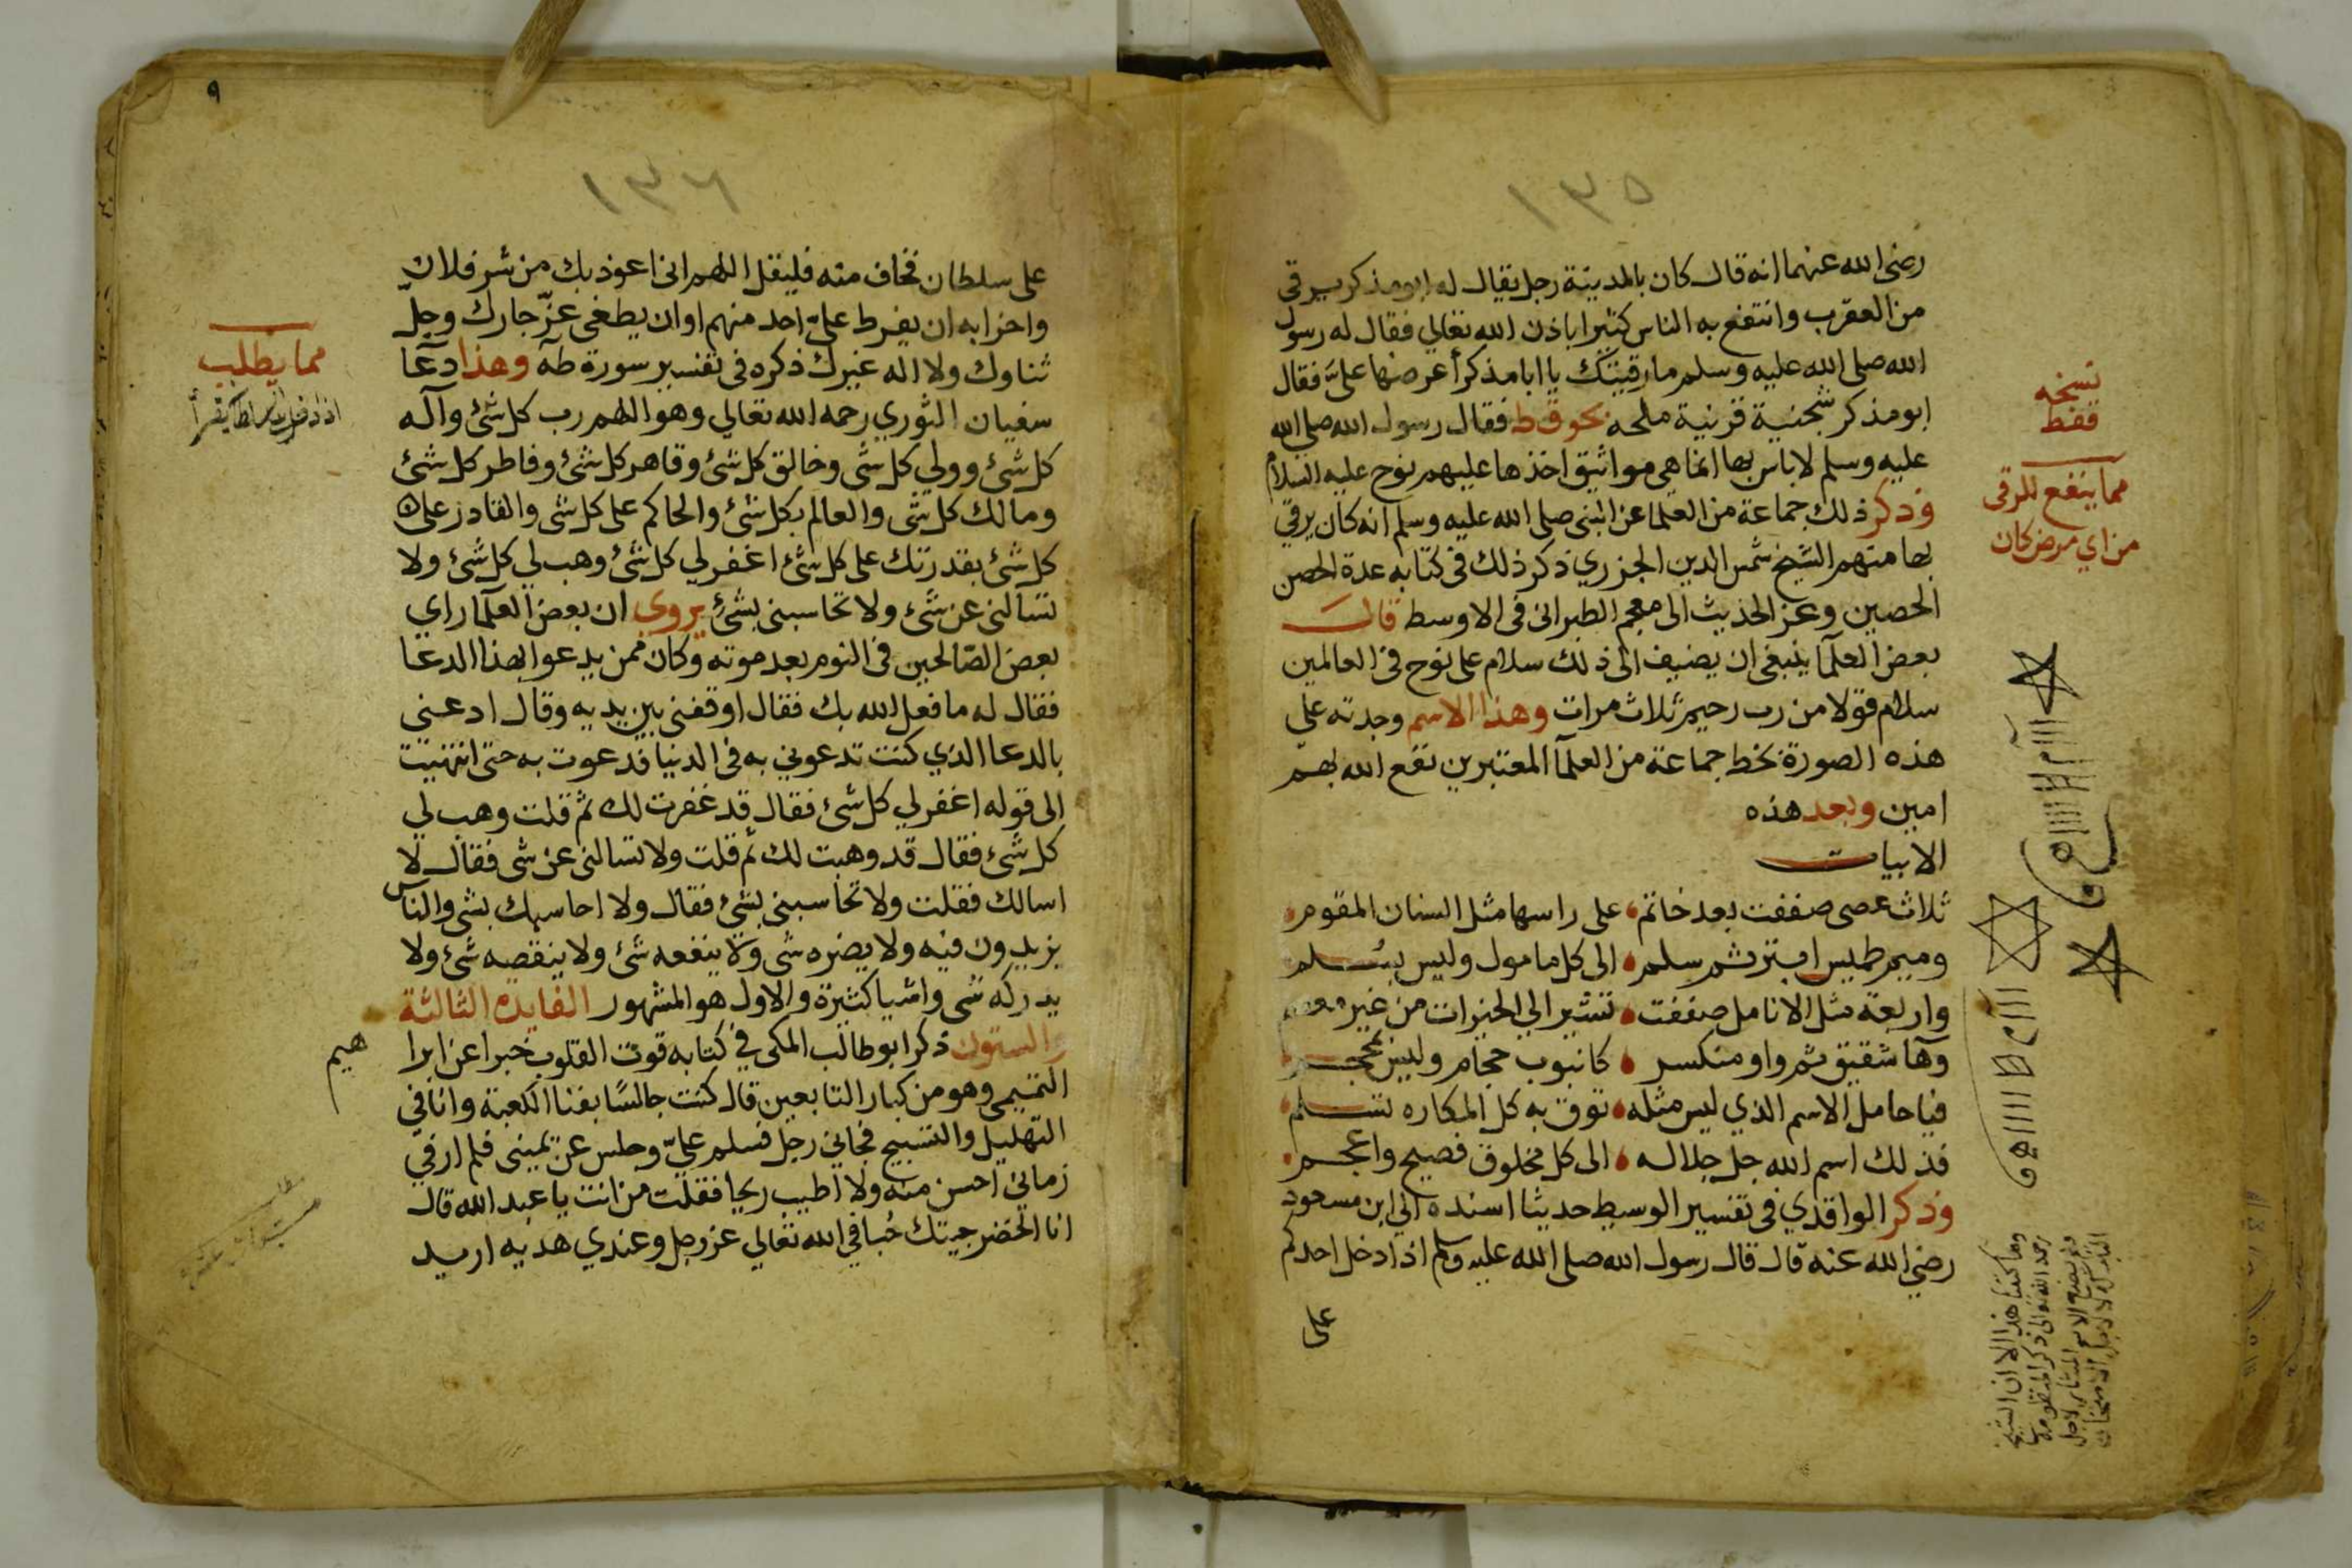 ١٣٥
رضي الله عنهما انه قال كان بالمدينة رجل يقال له ابو مذكر يرقي
من العقرب وانتفع به الناس كثيرا باذن الله تعالي فقال له رسول
الله صلى الله عليه وسلم ما رقيتك يا ابا مذكر أعرضها علىّ فقال
ابو مذكر شجنية قرنية ملحه بحر قفط فقال رسول الله صلى الله
عليه وسلم لا باس بها انما هي مواثيق اخذها عليهم نوح عليه السلام
وذكر ذلك جماعة من العلما عن النبى صلى الله عليه وسلم انه كان يرقي
بها منهم الشيخ شمس الدين الجزري ذكر ذلك فى كتابه عدة الحصن
الحصين وعز الحديث الى معجم الطبرانى فى الاوسط قال
بعض العلمآ ينبغى ان يضيف الى ذلك سلام على نوح فى العالمين
سلام قولا من رب رحيم ثلاث مرات وهذا الاسم وجدته على
هذه الصورة بخط جماعة من العلمآ المعتبرين نفع الله بهم
امين وبعد هذه
الابيات
ثلاث عصى صففت بعد خاتم على راسها مثل السنان المقوم
وميم طميس ابتر ثم سلم الى كل مامول وليس بسلم
واربعة مثل الانامل صففت تشير الي الخيرات من غير معصم
وهآ شقيق ثم واو منكسر كانبوب حجام وليس بمحجم
فيا حامل الاسم الذي ليس مثله توق به كل المكاره تسلم
فذلك اسم الله جل جلاله الى كل مخلوق فصيح واعجم
وذكر الواقدي فى تفسير الوسيط حديثا اسنده الي ابن مسعود
رضي الله عنه قال قال رسول الله صلى الله عليه وسلم اذا دخل احدكم
على
نسخه
قفط
مما ينفع للرقى
من اي مرض كان
١٣٦
٩
على سلطان يخاف منه فليقل اللهم انى اعوذ بك من شر فلان
واحزابه ان يفرط علىّ احد منهم او ان يطغى عزّ جارك وجلّ
ثناوك ولا اله غيرك ذكره فى تفسير سورة طه وهذا دعآ
سفيان الثوري رحمه الله تعالي وهو اللهم رب كل شئ وآله
كل شئ وولي كل شى وخالق كل شئ وقاهر كل شئ وفاطر كل شئ
ومالك كل شى والعالم بكل شئ والحاكم على كل شى والقادر على
كل شئ بقدرتك على كل شئ اغفر لي كل شئ وهب لي كل شئ ولا
تسالنى عن شئ ولا تحاسبنى بشئ يروى ان بعض العلمآ راي
بعض الصّالحين فى النوم بعد موته وكان ممن يدعوا بهذا الدعا
فقال له ما فعل الله بك فقال اوقفنى بين يديه وقال ادعنى
بالدعا الذي كنت تدعوني به فى الدنيا فدعوت به حتى انتهيت
الى قوله اغفر لي كل شئ فقال قد غفرت لك ثم قلت وهب لي
كل شئ فقال قد وهبت لك ثم قلت ولا تسالنى عن شى فقال لا
اسالك فقلت ولا تحاسبنى بشئ فقال ولا احاسبك بشى والناس
يزيدون فيه ولا يضره شى ولا ينفعه شئ ولا ينقصه شئ ولا
يدركه شى واشيا كثيرة والاول هو المشهور الفايدة الثالثة
والستون ذكر ابو طالب المكى في كتابه قوت القلوب خبرا عن ابرا
هيم
التميمى وهو من كبار التابعين قال كنت جالسًا بفنا الكعبة وانا في
التهليل والتسبيح فجاني رجل فسلم عليّ وجلس عن يمينى فلم ار في
زماني احسن منه ولا اطيب ريحا فقلت من انت يا عبد الله قال
انا الخضر جيتك حُبا في الله تعالي عز وجل وعندي هديه اريد
مما يطلب